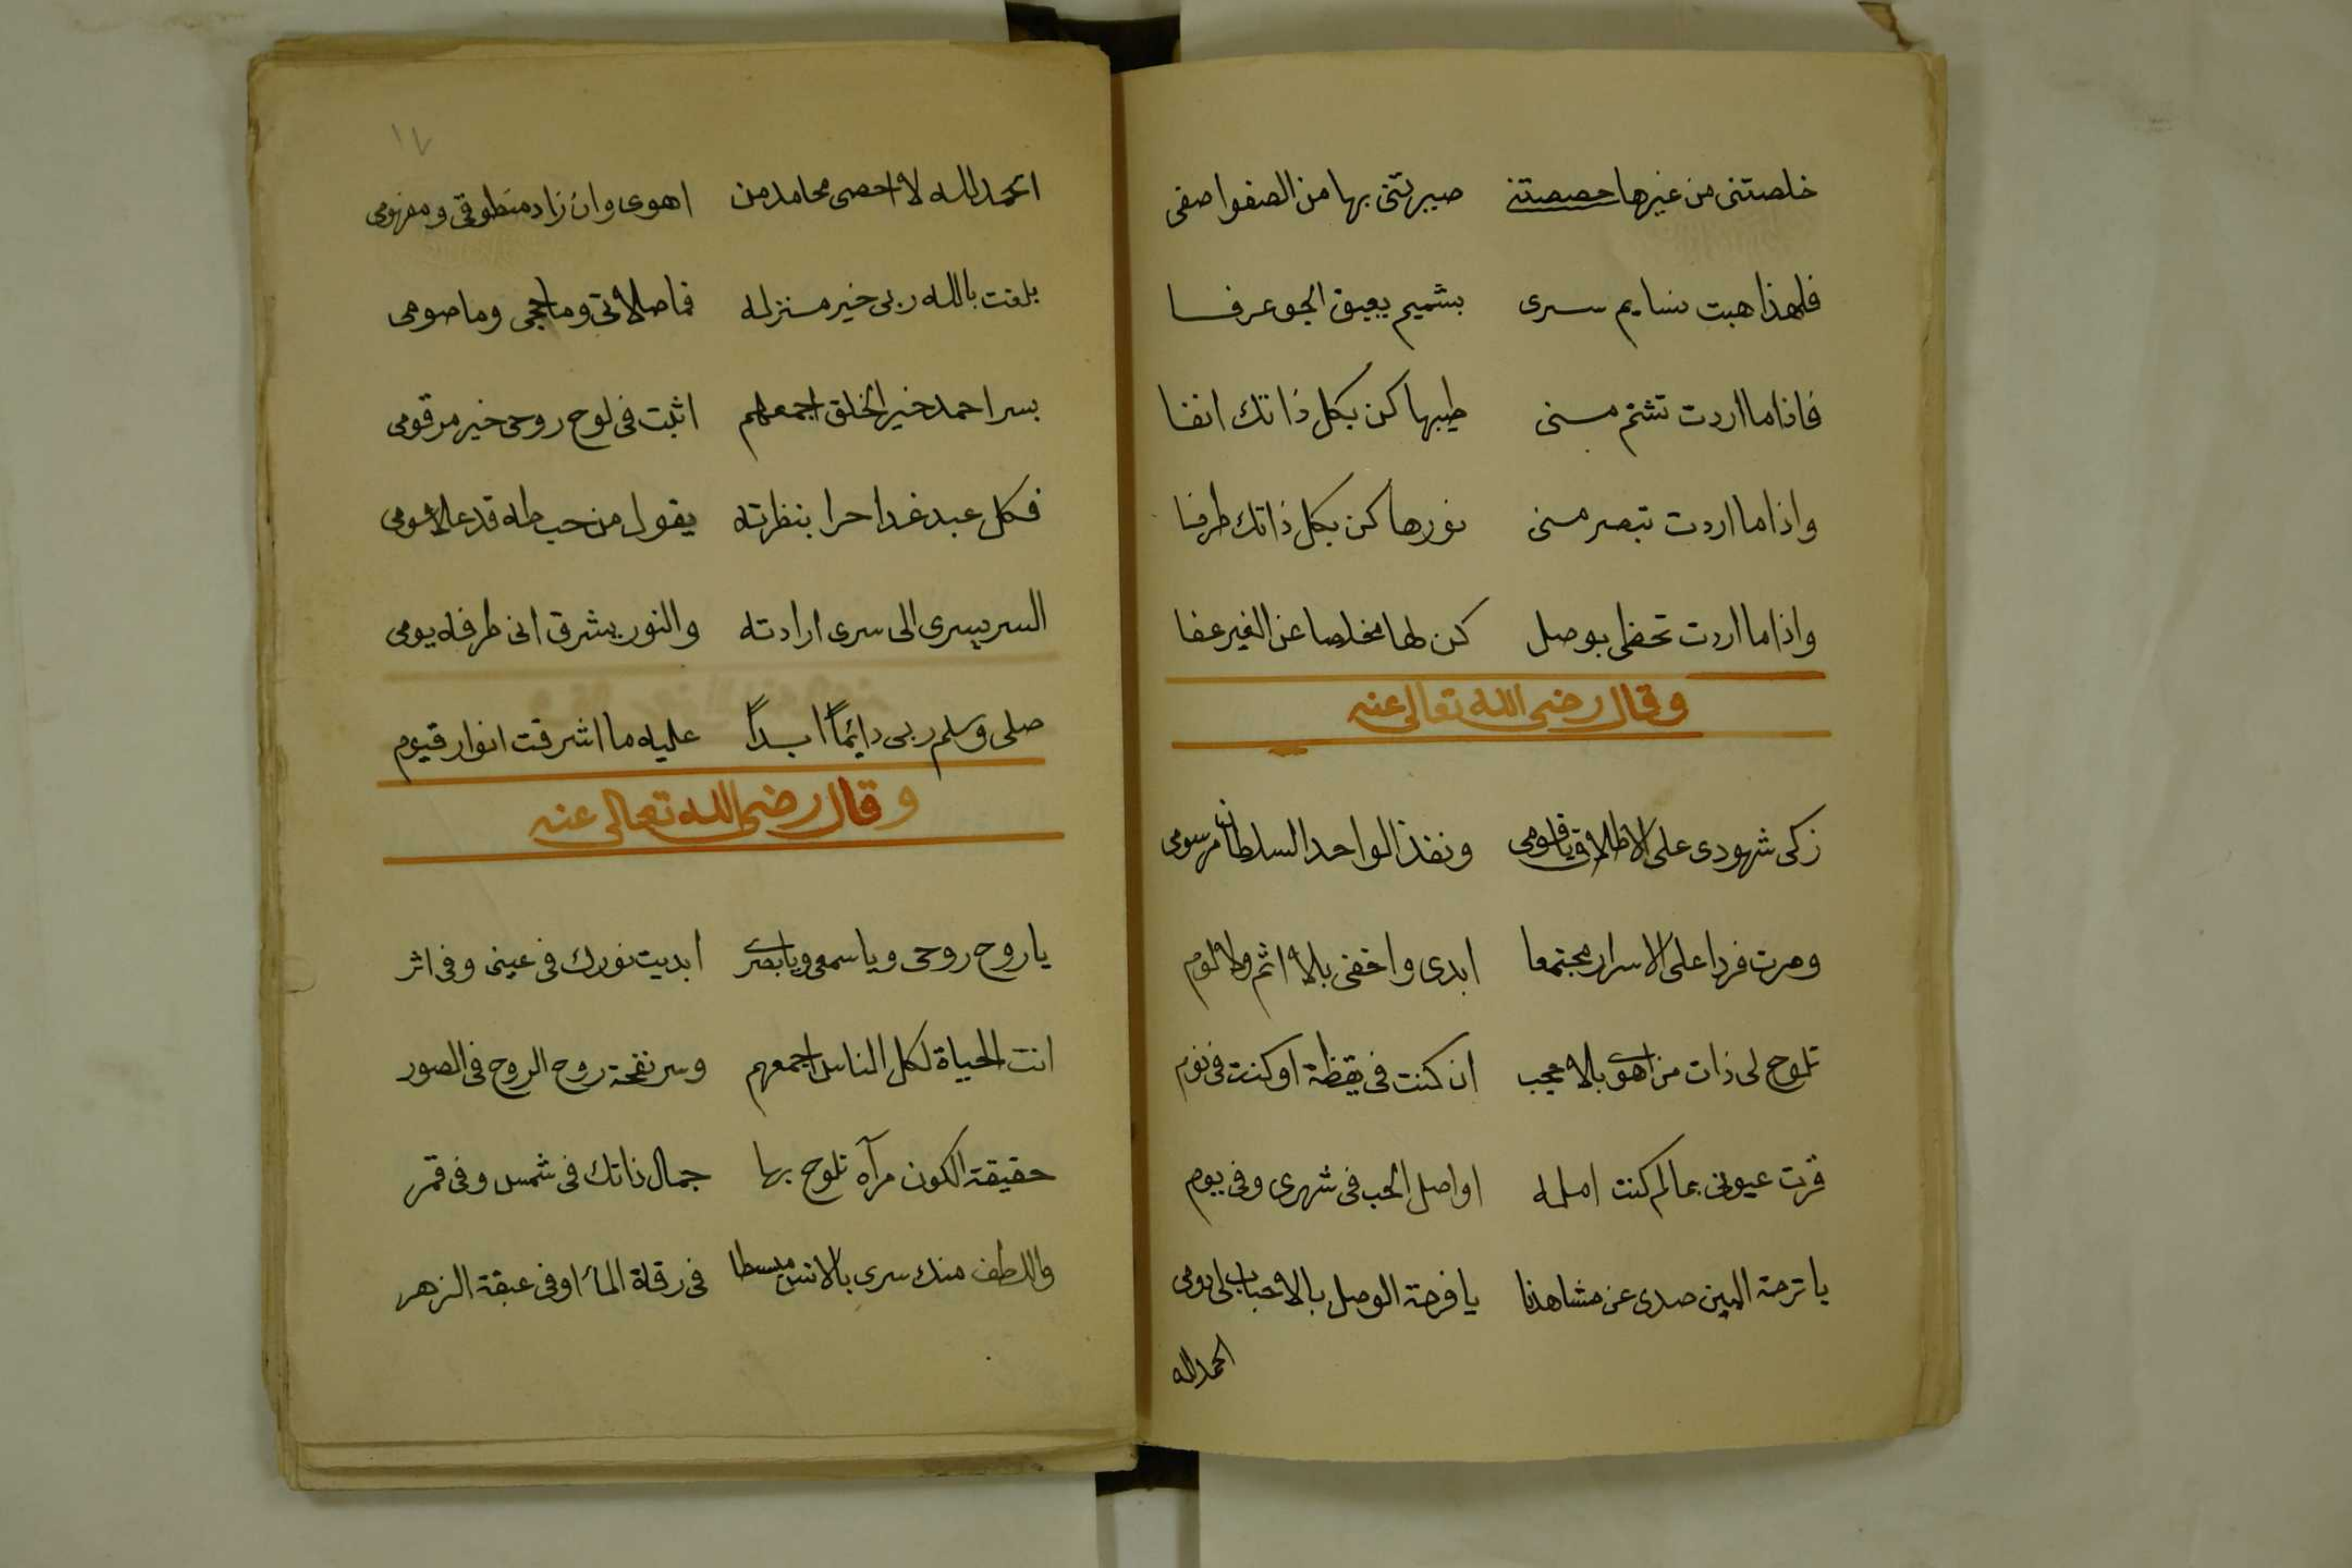 خلصتنى من غيرها خصصتنى صيرتنى بها من الصفو اصفى
فلهذا هبت نسايم سرى بشميم يعبق الجو عرفا
فاذا ما اردت تشتم منى طيبها كن بكل ذاتك انفا
واذا ما اردت تبصر منى نورها كن بكل ذاتك طرفا
واذا ما اردت تحظى بوصل كن لها مخلصا عن الغير عفا
وقال رضى الله تعالى عنه
زكى شهودى على الاطلاق قيومى ونفذ الواحد السلطان مرسومى
وصرت فردا على الاسرار مجتمعا ابدى واخفى بلا اثم ولا لوم
تلوح لى ذات من اهوى بلا حجب ان كنت فى يقظة او كنت فى نوم
قرت عيونى بما لم كنت امله اواصل الحب فى شهرى وفى يوم
يا ترحة البين صدى عن مشاهدنا يا فرحة الوصل بالاحباب لى دومى
الحمد لله
١٧
الحمد لله لا احصى محامد من اهوى وان زاد منطوقى ومفهومى
بلغت بالله ربى خير منزله فما صلاتى وما حجى وما صومى
بسر احمد خير الخلق اجمعهم اثبت فى لوح روحى خير مرقومى
فكل عبد غدا حرا بنظرته يقول من حب طه قد علا سومى
السر يسرى الى سرى ارادته والنور يشرق انى طرفه يومى
صلى وسلم ربى دائماً ابداً عليه ما اشرقت انوار قيوم
وقال رضى الله تعالى عنه
يا روح روحى ويا سمعى ويا بصرى ابديت نورك فى عينى وفى اثر
انت الحياة لكل الناس اجمعهم وسر نفحة روح الروح فى الصور
حقيقة الكون مرآه تلوح بها جمال ذاتك فى شمس وفى قمر
واللطف منك سرى بالانس منبسطا فى رقة الماء او فى عبقة الزهر